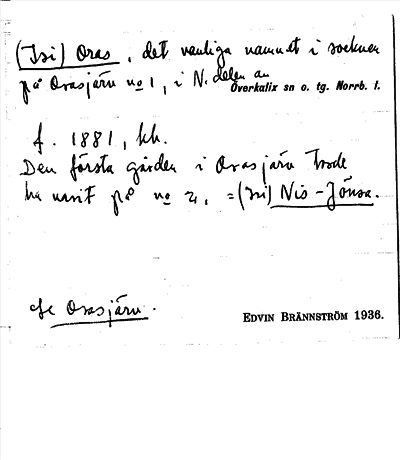 (Isi) Oras, det vanliga namnet i socknen
på Orasjärv no 1, i N. delen av
Överkalix sn o. tg. Norrb. l.
f. 1881, kh.
Den första gården i Orasjärv trode
ha varit på no 2, = (Isi) Nis-Jönsa.
Se Orasjärv.
EDVIN BRÄNNSTRÖM 1936.